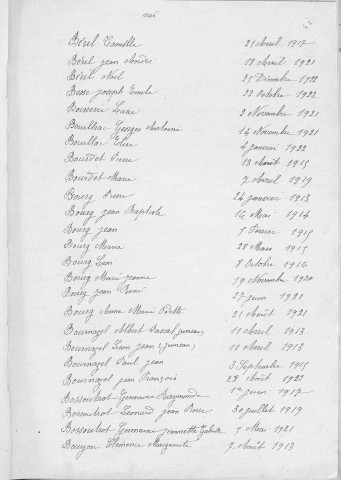 Béril Camille 21 Avril 1917
Béril jean André 18 Avril 1921
Béril Noël 25 Décembre 1922
Besse Joseph Emile 22 Octobre 1922
Lucie 2 Novembre 1921
Bouilhac Georges Antoine 14 Novembre 1921
4 janvier 1922
Bourdet Pierre 13 Août 1915
Bourdet Marie 7 Avril 1919
Bourg Pierre 24 janvier 1913
Bourg jean Baptiste 16 Mai 1914
Bourg jean 1 Février 1915
Bourg Maria 28 Mars 1915
Bourg Léon 8 Octobre 1916
Bourg Marie jeanne 19 Novembre 1920
Bourg jean René 27 juin 1921
Bourg Anne Marie Odette 21 Août 1921
Bournazel Albert (jumeau) 11 Avril 1913
Bournazel Léon jean (jumeau) 11 Avril 1913
Bournazel Paul jean 3 Septembre 1915
Bournazel jean François 28 Août 1922
Bossoutrot Germaine Raymonde 1er juin 1917
Bossoutrot Léonard jean Pierre 30 juillet 1919
Bossoutrot Germaine jeannette 5 Mai 1921
Bouyou Clémence Marguerite 7 Août 1913